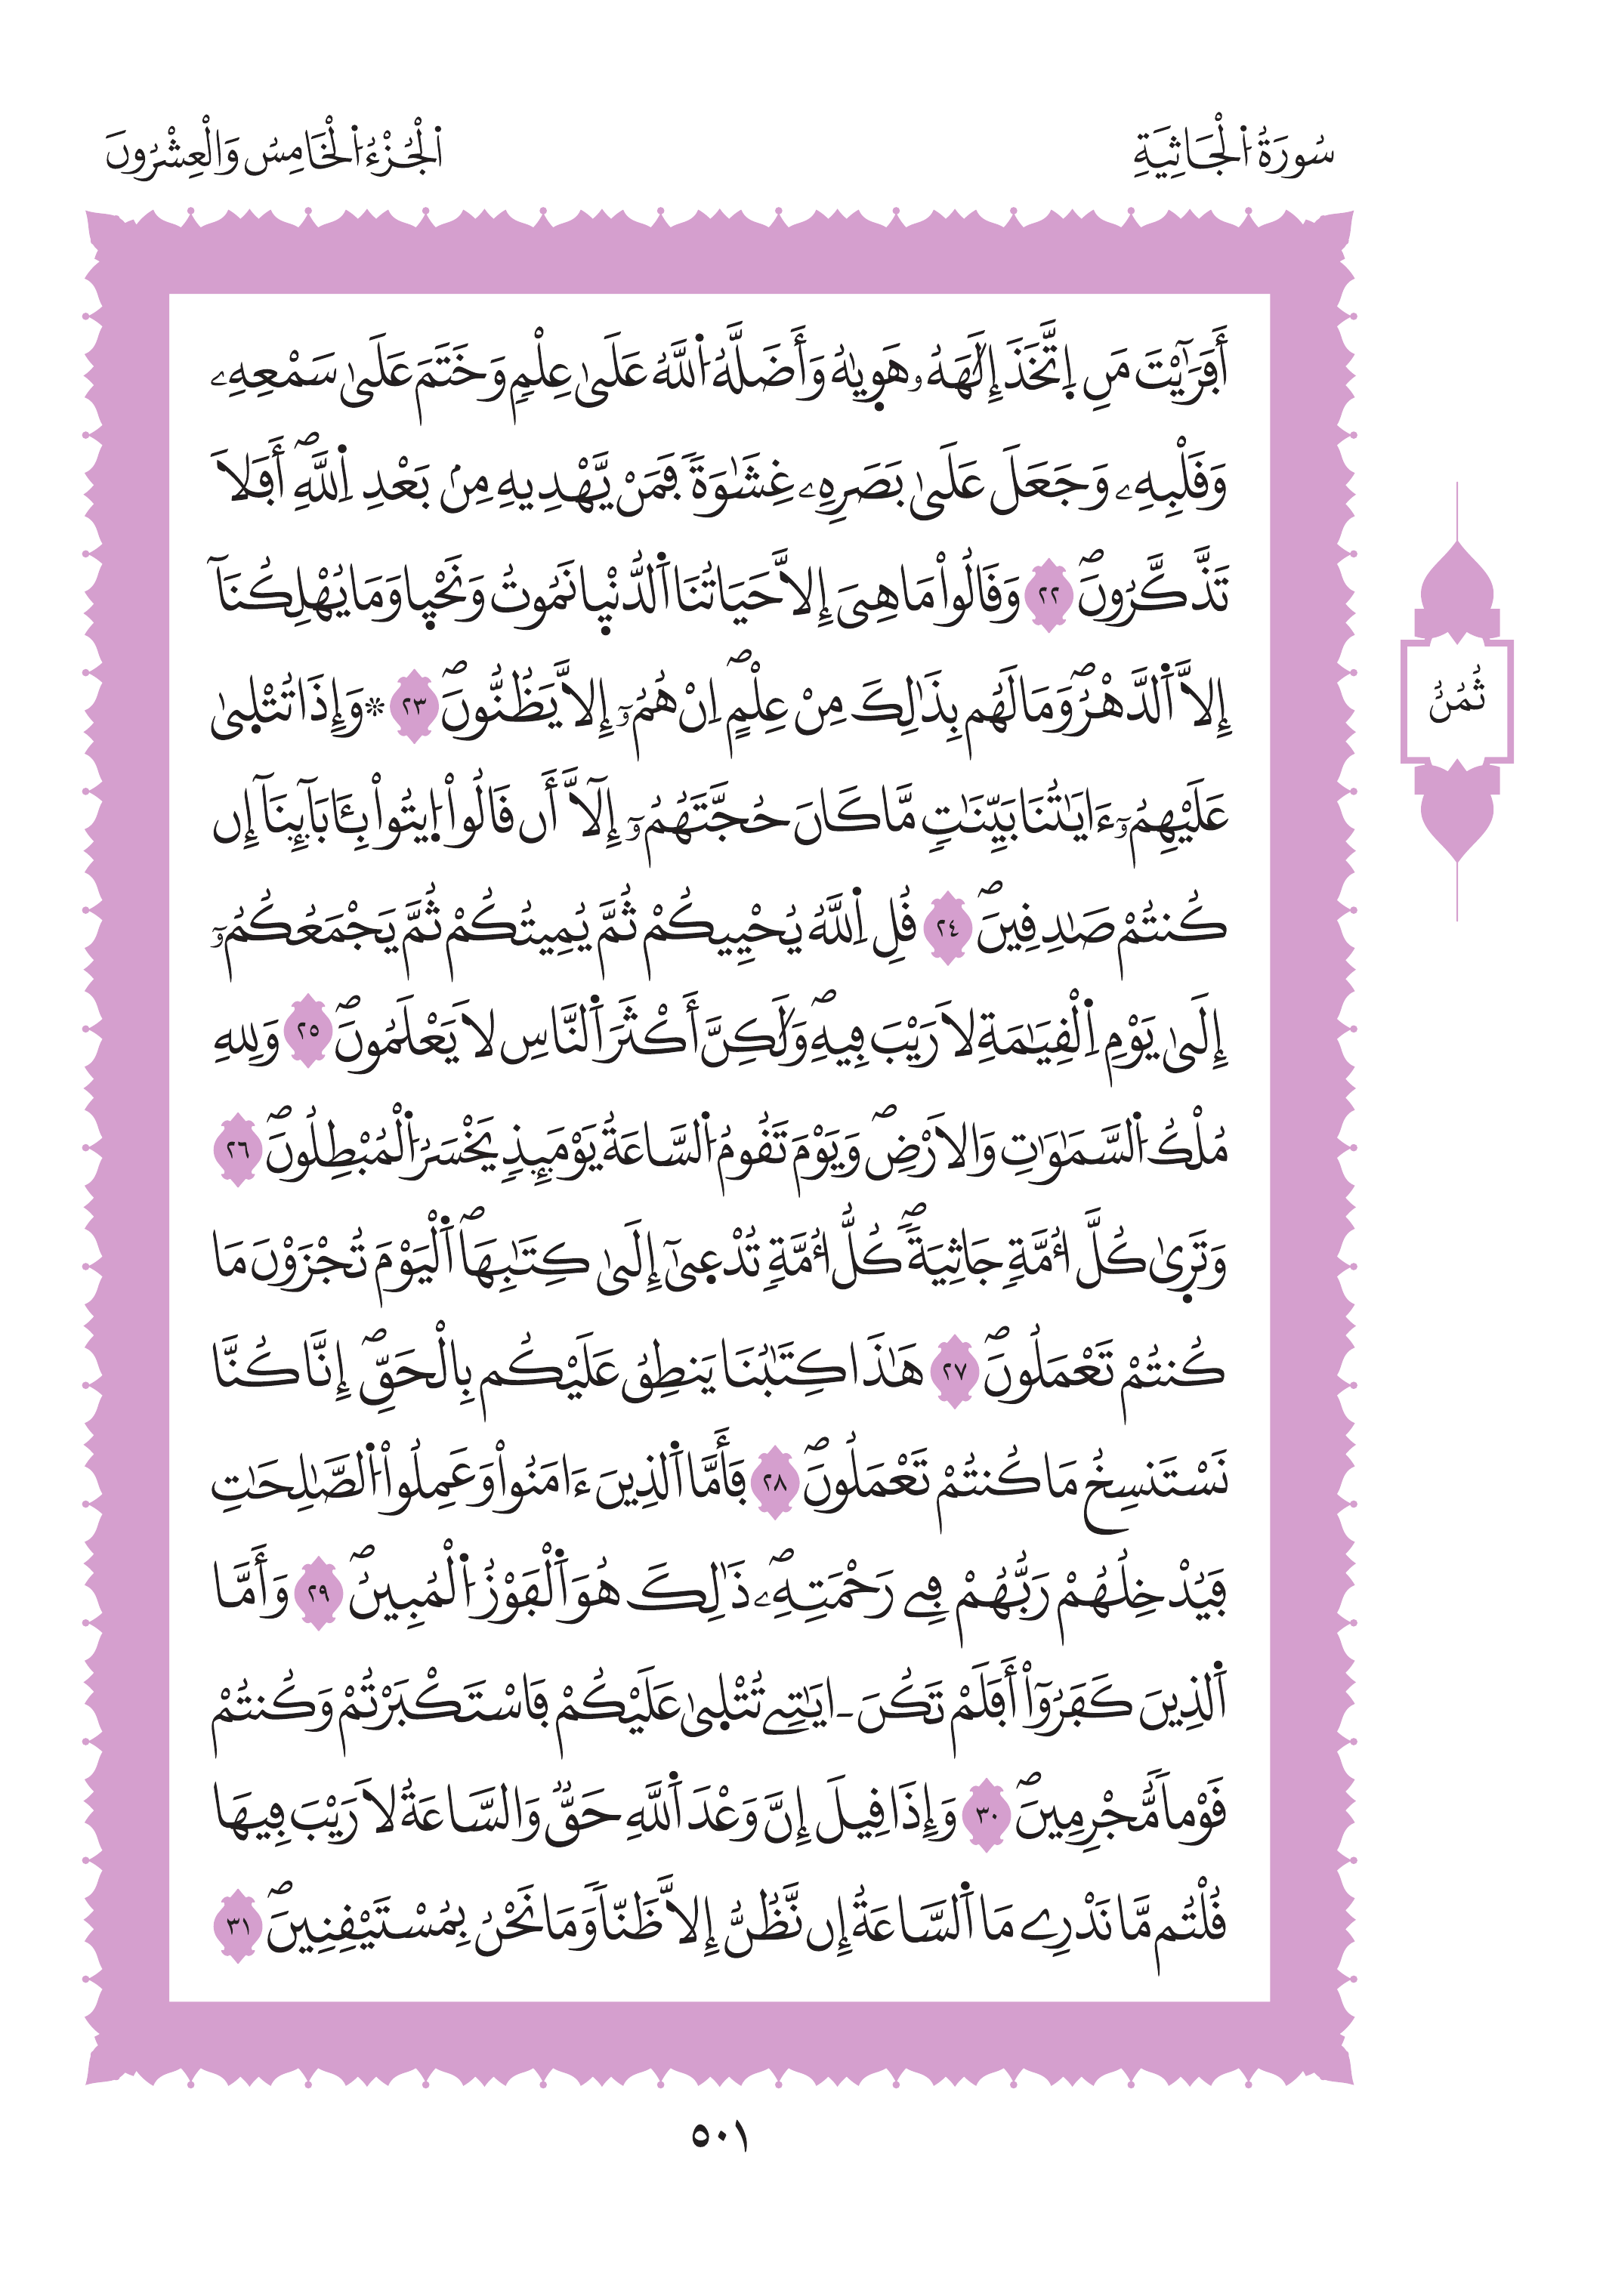 سُورَةُ اُ۬لْجَاثِيَةِ
اَ۬لْجُزْءُ اُ۬لْخَامِسُ وَالْعِشْرُونَ
أَفَرَٰٓيْتَ مَنِ اِ۪تَّخَذَ إِلَٰهَهُۥ هَو۪يٰهُ وَأَضَلَّهُ اُ۬للَّهُ عَلَىٰ عِلْمٖ وَخَتَمَ عَلَىٰ سَمْعِهِۦ
وَقَلْبِهِۦ وَجَعَلَ عَلَىٰ بَصَرِهِۦ غِشَٰوَةٗ فَمَنْ يَّهْدِيهِ مِنۢ بَعْدِ اِ۬للَّهِۖ أَفَلَا
تَذَّكَّرُونَۖ ٢٢ وَقَالُواْ مَا هِيَ إِلَّا حَيَاتُنَا اَ۬لدُّنْي۪ا نَمُوتُ وَنَحْي۪ا وَمَا يُهْلِكُنَآ
إِلَّا اَ۬لدَّهْرُۖ وَمَا لَهُم بِذَٰلِكَ مِنْ عِلْمٍۖ اِنْ هُمُۥٓ إِلَّا يَظُنُّونَۖ ٢٣ ۞وَإِذَا تُتْل۪ىٰ
عَلَيْهِمُۥٓ ءَايَٰتُنَا بَيِّنَٰتٖ مَّا كَانَ حُجَّتَهُمُۥٓ إِلَّآ أَن قَالُواْ اُ۪يتُواْ بِـَٔابَآئِنَآ إِن
كُنتُمْ صَٰدِقِينَۖ ٢٤ قُلِ اِ۬للَّهُ يُحْيِيكُمْ ثُمَّ يُمِيتُكُمْ ثُمَّ يَجْمَعُكُمُۥٓ
إِلَىٰ يَوْمِ اِ۬لْقِيَٰمَةِ لَا رَيْبَ فِيهِۖ وَلَٰكِنَّ أَكْثَرَ اَ۬لنَّاسِ لَا يَعْلَمُونَۖ ٢٥ وَلِلهِ
مُلْكُ اُ۬لسَّمَٰوَٰتِ وَالَارْضِۖ وَيَوْمَ تَقُومُ اُ۬لسَّاعَةُ يَوْمَئِذٖ يَخْسَرُ اُ۬لْمُبْطِلُونَۖ ٢٦
وَتَر۪ىٰ كُلَّ أُمَّةٖ جَاثِيَةٗۖ كُلُّ أُمَّةٖ تُدْع۪ىٰٓ إِلَىٰ كِتَٰبِهَاۖ اَ۬لْيَوْمَ تُجْزَوْنَ مَا
كُنتُمْ تَعْمَلُونَۖ ٢٧ هَٰذَا كِتَٰبُنَا يَنطِقُ عَلَيْكُم بِالْحَقِّۖ إِنَّا كُنَّا
نَسْتَنسِخُ مَا كُنتُمْ تَعْمَلُونَۖ ٢٨ فَأَمَّا اَ۬لذِينَ ءَامَنُواْ وَعَمِلُواْ اُ۬لصَّٰلِحَٰتِ
فَيُدْخِلُهُمْ رَبُّهُمْ فِے رَحْمَتِهِۦۖ ذَٰلِكَ هُوَ اَ۬لْفَوْزُ اُ۬لْمُبِينُۖ ٢٩ وَأَمَّا
اَ۬لذِينَ كَفَرُوٓاْ أَفَلَمْ تَكُنَ ـ ايَٰتِے تُتْل۪ىٰ عَلَيْكُمْ فَاسْتَكْبَرْتُمْ وَكُنتُمْ
قَوْماٗ مُّجْرِمِينَۖ ٣٠ وَإِذَا قِيلَ إِنَّ وَعْدَ اَ۬للَّهِ حَقّٞ وَالسَّاعَةُ لَا رَيْبَ فِيهَا
قُلْتُم مَّا نَدْرِے مَا اَ۬لسَّاعَةُ إِن نَّظُنُّ إِلَّا ظَنّاٗ وَمَا نَحْنُ بِمُسْتَيْقِنِينَۖ ٣١
ثُمُنُ
٥٠١